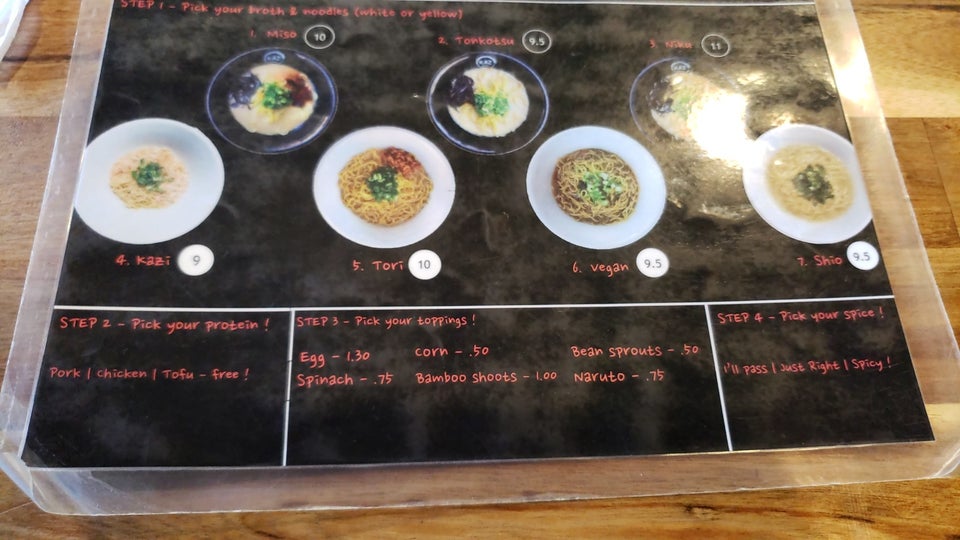 STEP 1 - Pick your broth & noodles (white or yellow)
1. Miso 10
2. Tonkotsu 9.5
3. Niku 11
4. Kazi 9
5. Tori 10
6. Vegan 9.5
7. Shio 9.5
STEP 2 - Pick your protein !
Pork | Chicken | Tofu - free !
STEP 3 - Pick your toppings !
Egg - 1.30
Corn - .50
Bean sprouts - .50
Spinach - .75
Bamboo shoots - 1.00
Naruto - .75
STEP 4 - Pick your spice !
I'll pass | Just Right | Spicy !